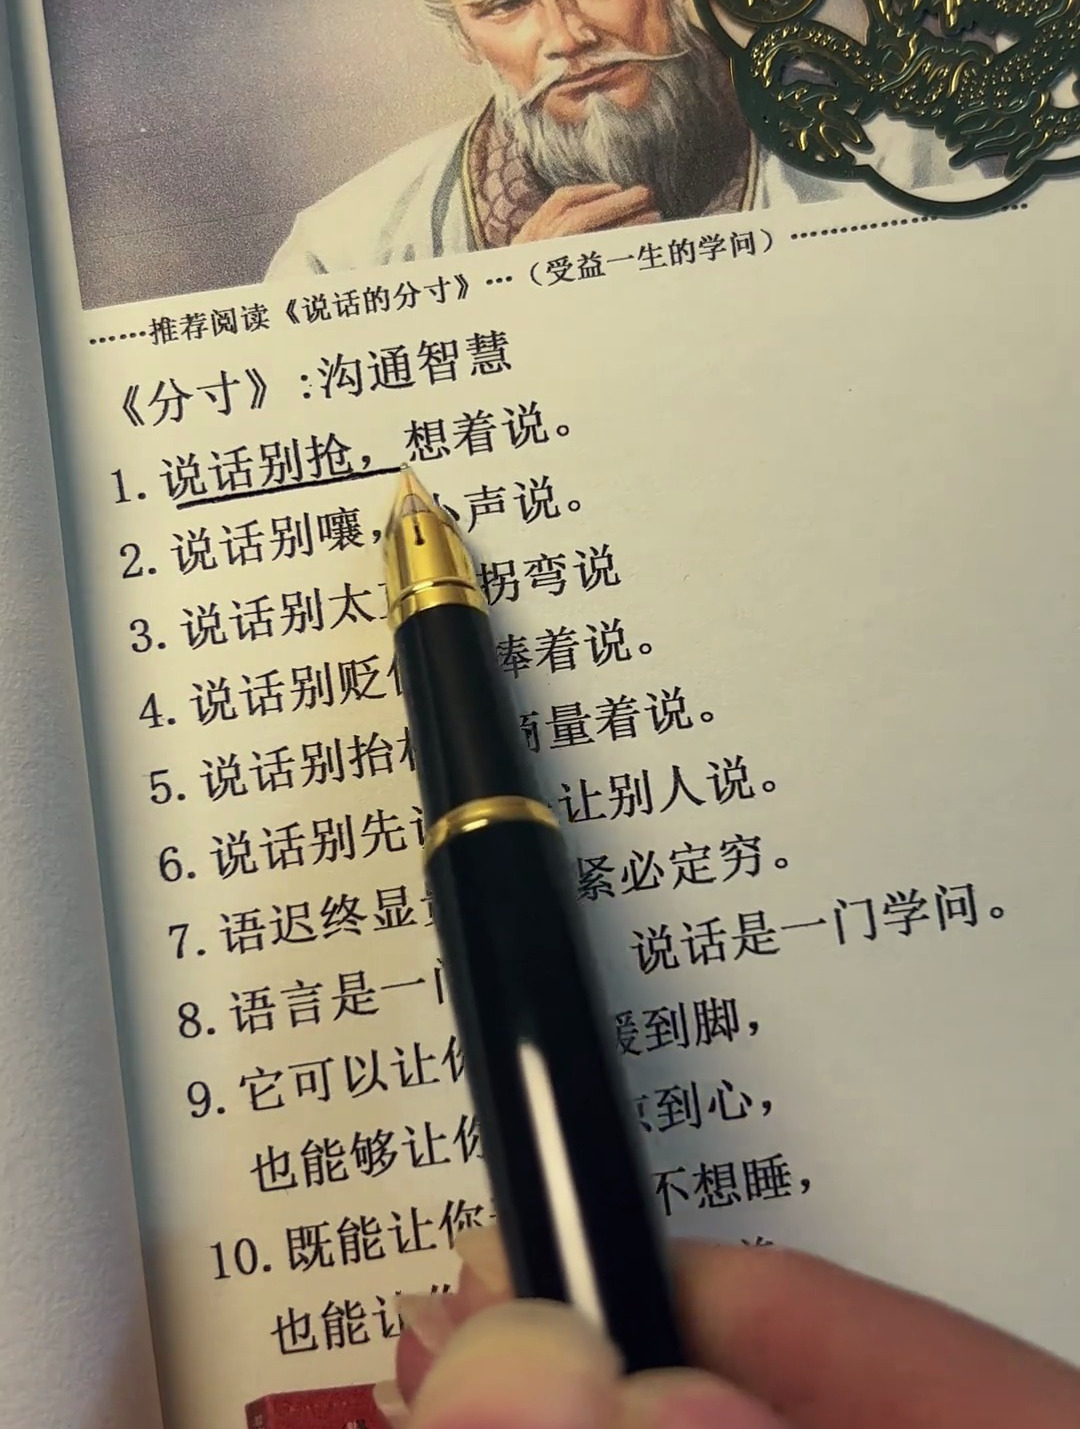 ……推荐阅读《说话的分寸》…（受益一生的学问）……………
《分寸》:沟通智慧
1. 说话别抢，想着说。
2. 说话别嚷，小声说。
3. 说话别太 拐弯说
4. 说话别贬 捧着说。
5. 说话别抬 商量着说。
6. 说话别先 让别人说。
7. 语迟终显 紧必定穷。
8. 语言是一门 说话是一门学问。
9. 它可以让你 暖到脚，
也能够让你 到心，
10. 既能让你 不想睡，
也能让